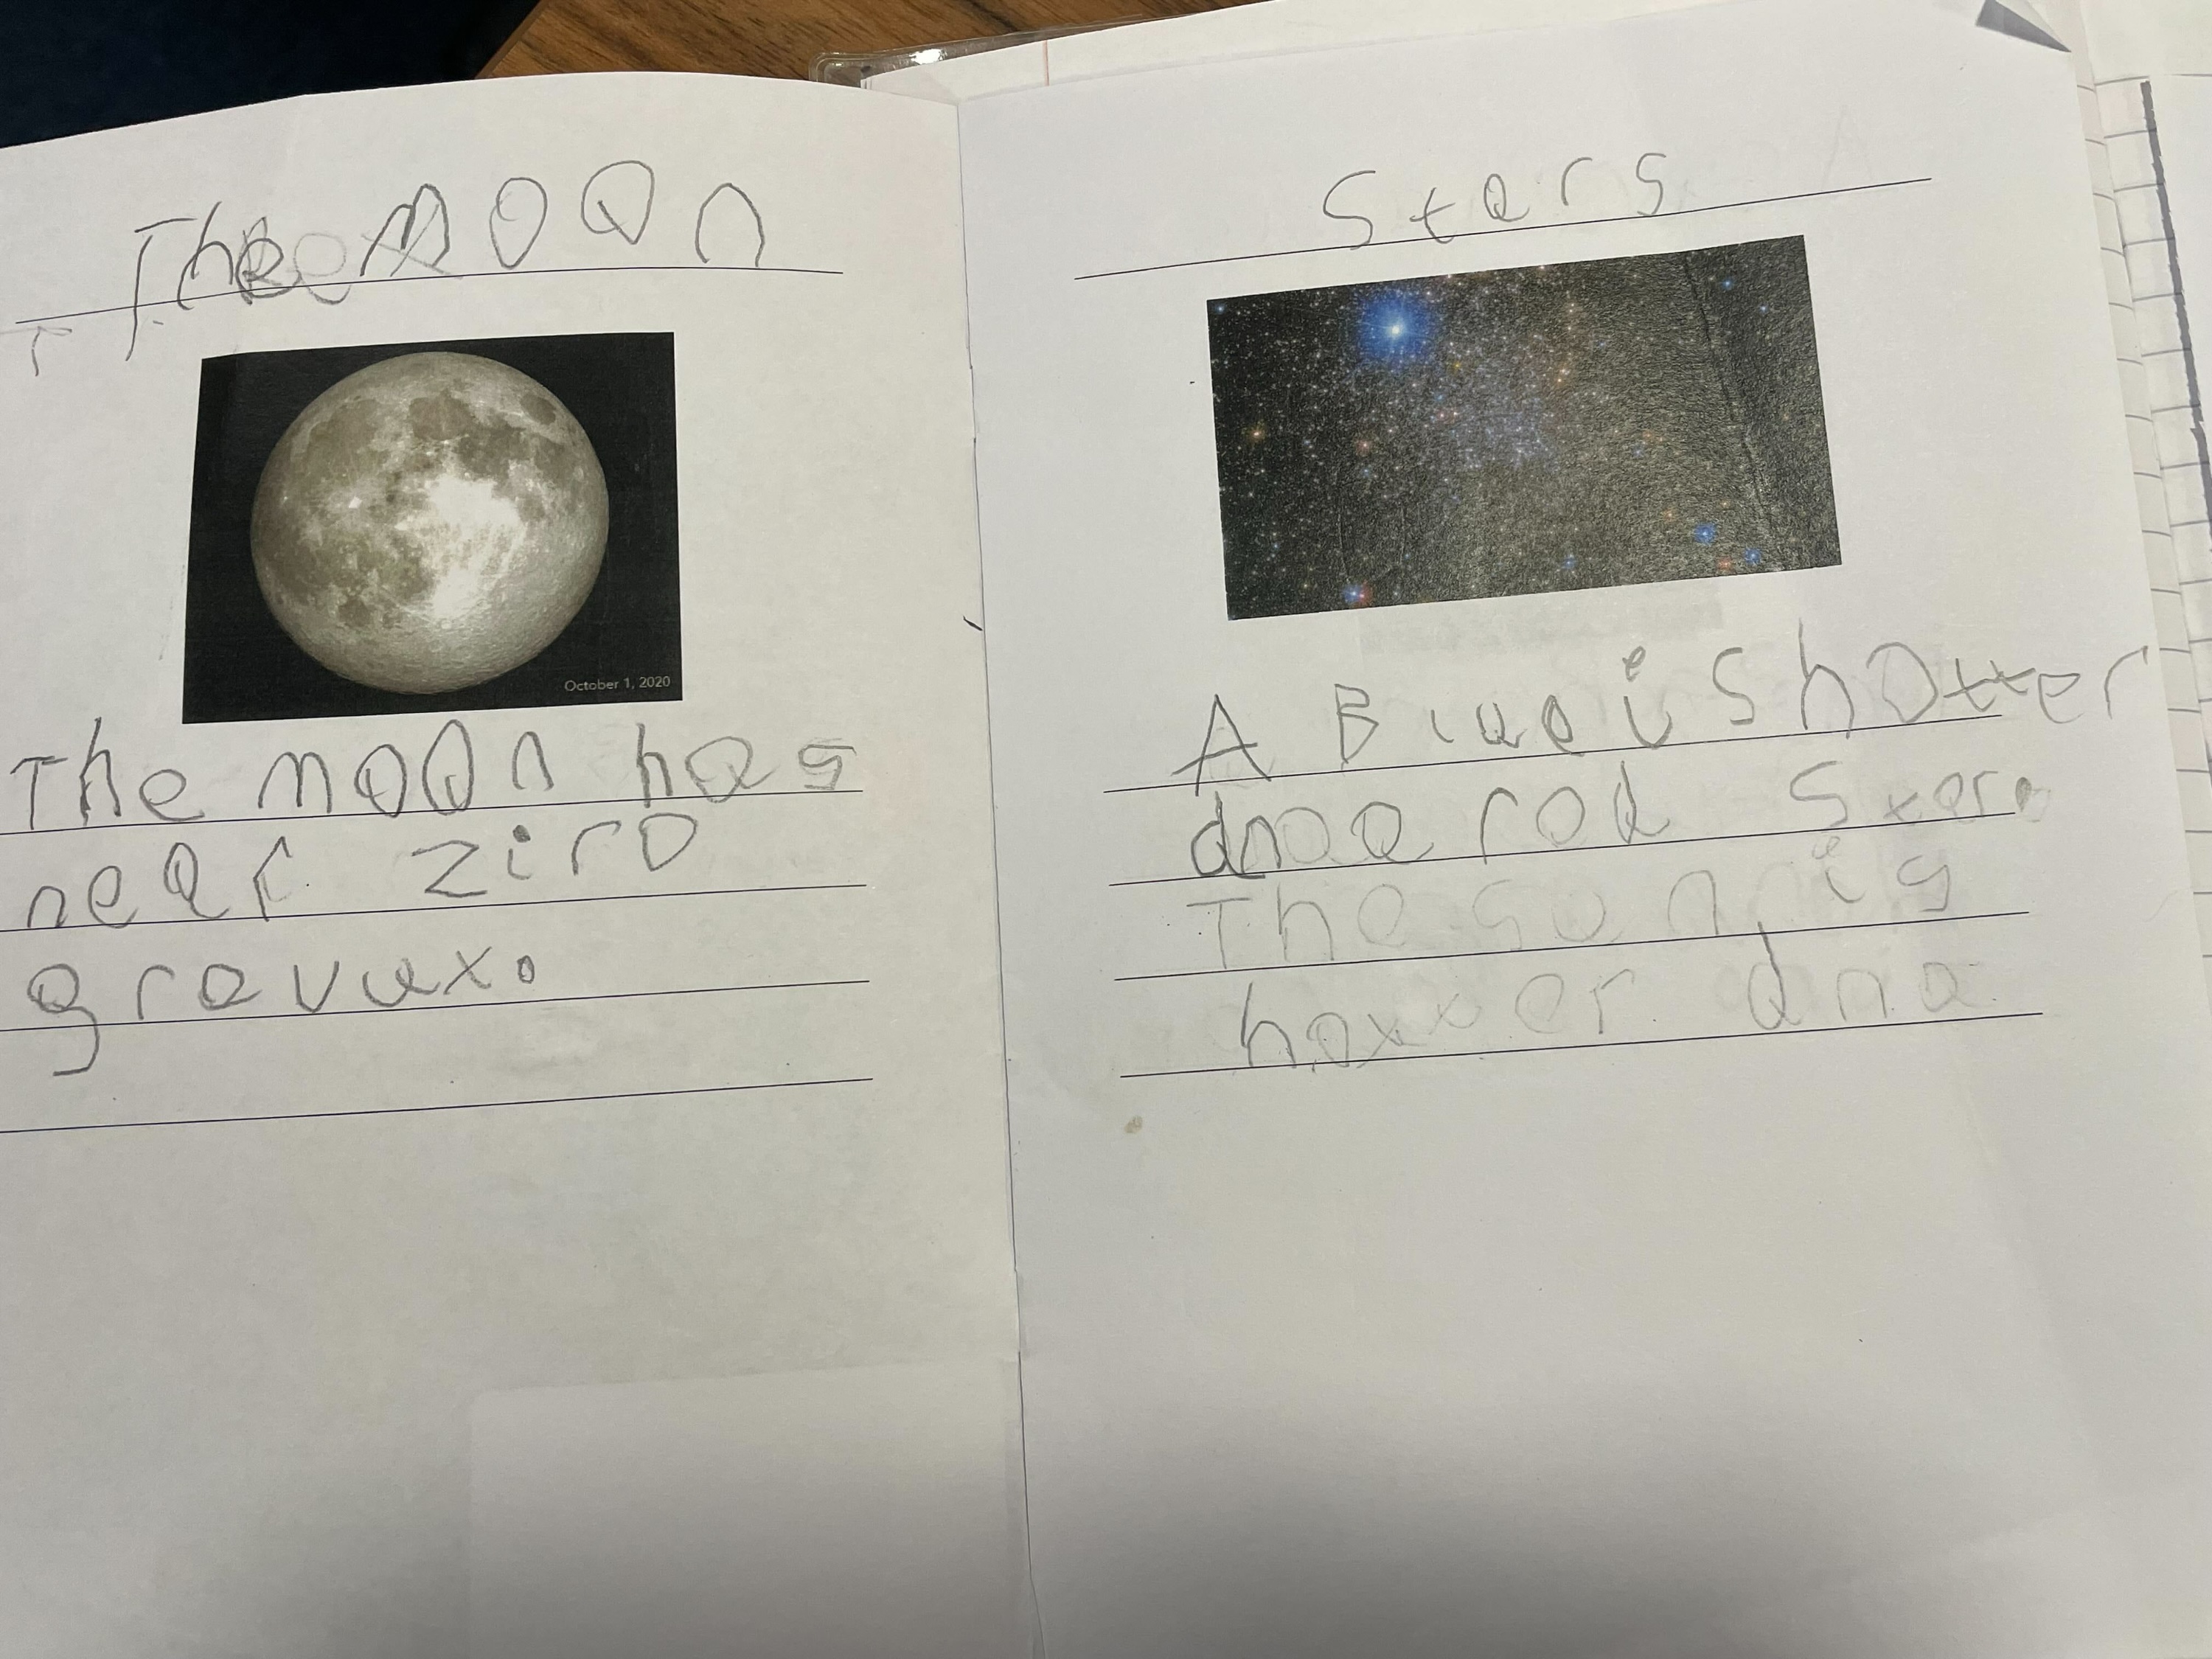 The Moon
October 1, 2020
The moon has
near ziro
gravux.
Stars
A Blue is hotter
dna red Stars
The son is
hoxxer dna